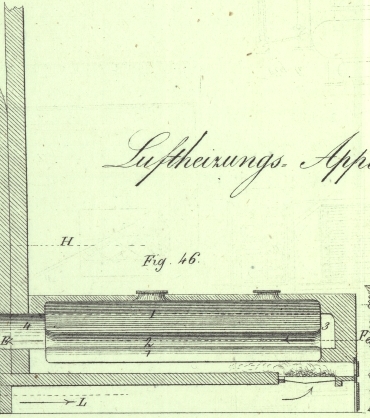 Luftheizungs- App
H
Fig. 46.
1
4
3
E
2
Fe
1
L